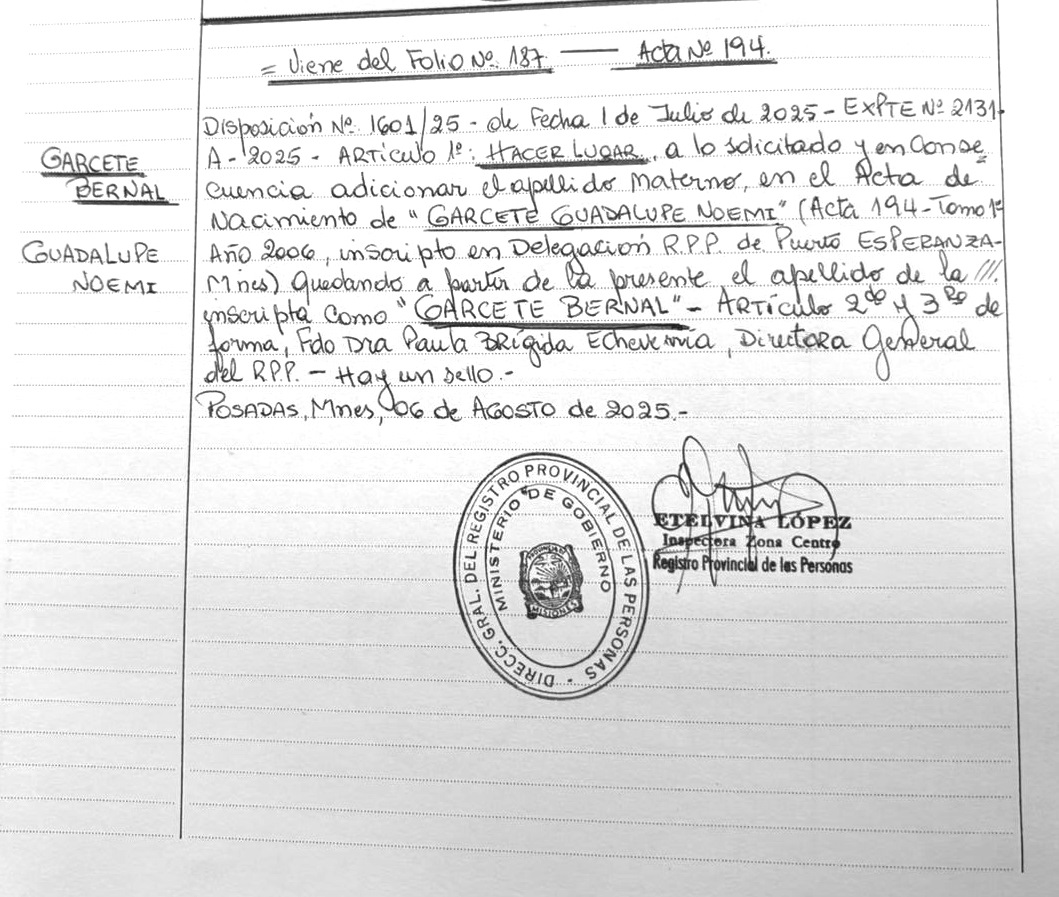 = Viene del Folio Nº 187 — Acta Nº 194.
GARCETE
BERNAL
GUADALUPE
NOEMI
Disposición Nº 1601/25 - de Fecha 1 de Julio de 2025 - EXPTE Nº 2131-
A - 2025 - ARTÍCULO 1º: HACER LUGAR, a lo solicitado y en Conse
cuencia adicionar el apellido Materno, en el Acta de
Nacimiento de "GARCETE GUADALUPE NOEMI" (Acta 194 - Tomo 1º
Año 2006, inscripto en Delegación R.P.P. de Puerto ESPERANZA-
Mnes) Quedando a partir de la presente el apellido de la ///.
inscripta como "GARCETE BERNAL" - ARTÍCULO 2do y 3Ro de
forma, Fdo Dra Paula BRígida Echeverria, Directora General
del R.P.P. - Hay un sello.-
POSADAS, Mnes, 06 de AGOSTO de 2025.-
DIRECC. GRAL. DEL REGISTRO PROVINCIAL DE LAS PERSONAS
MINISTERIO DE GOBIERNO
MISIONES
ETELVINA LÓPEZ
Inspectora Zona Centro
Registro Provincial de las Personas